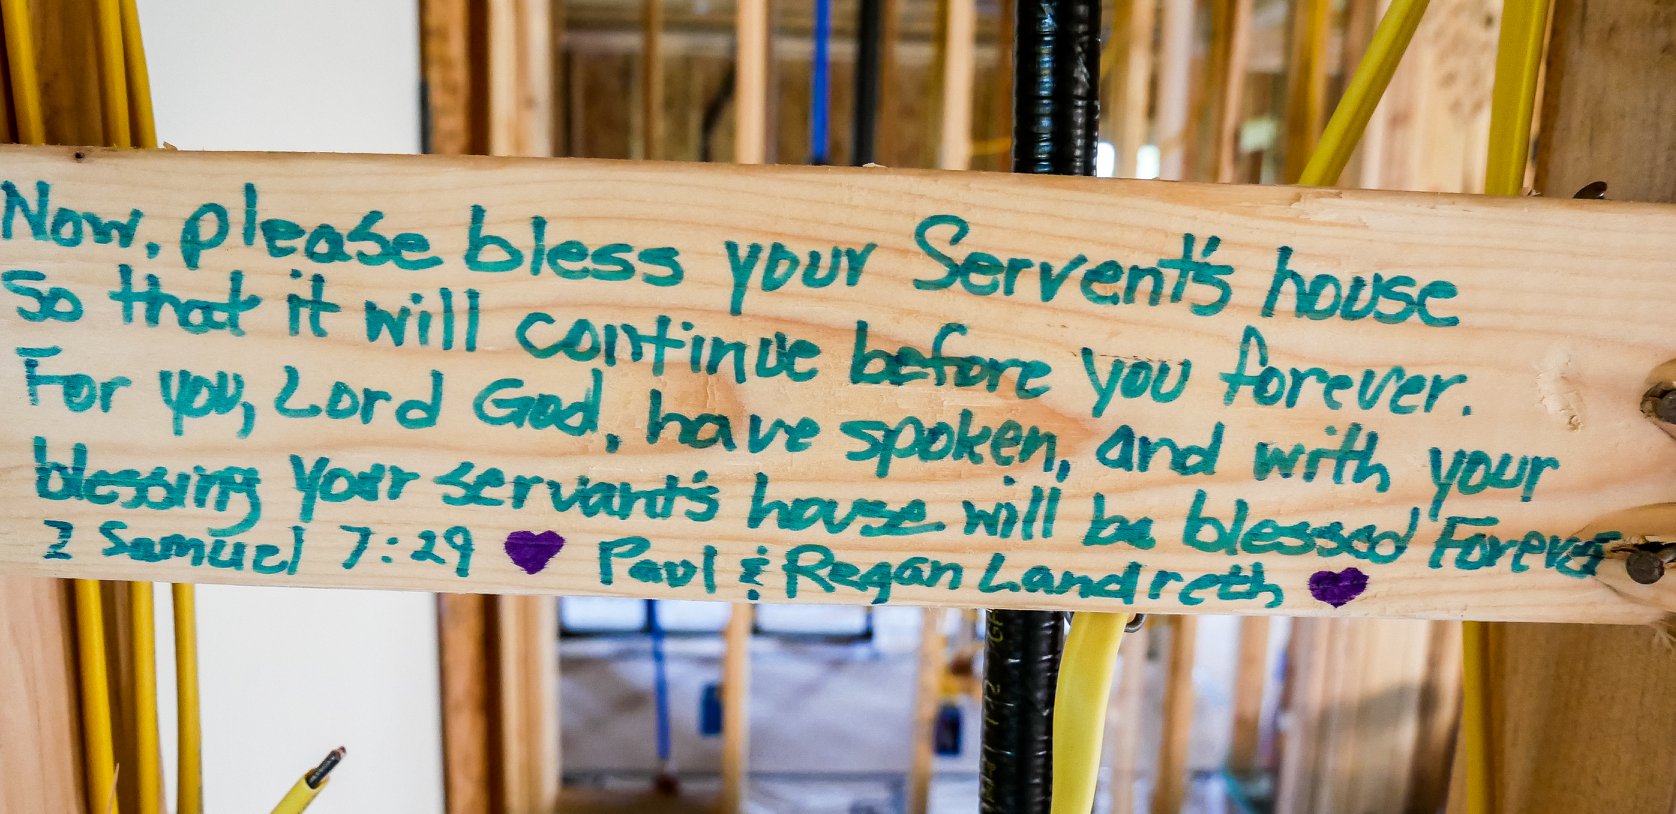 Now, please bless your Servent's house
So that it will continue before you forever.
For you, Lord God, have spoken, and with your
blessing your servant's house will be blessed Forever
2 Samuel 7:29 💜 Paul & Regan Landreth 💜